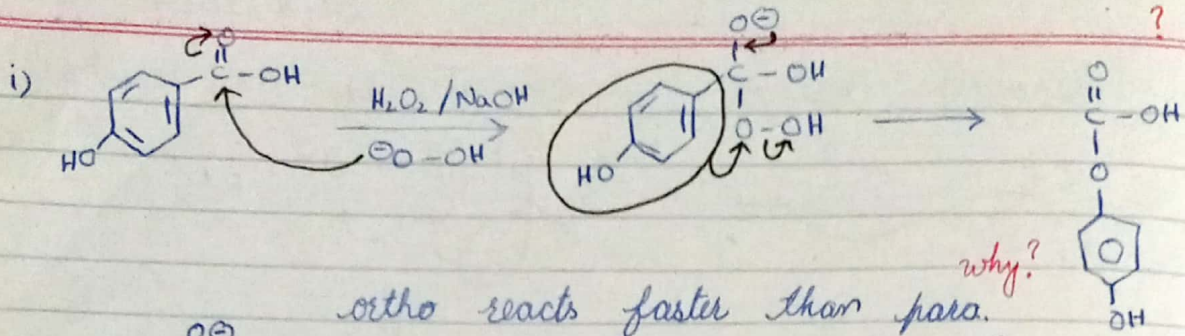 ?
i)
O
C - OH
HO
H₂O₂ / NaOH
⊖O - OH
O⊖
C - OH
O - OH
HO
O
C - OH
O
OH
why?
ortho reacts faster than para.
O⊖